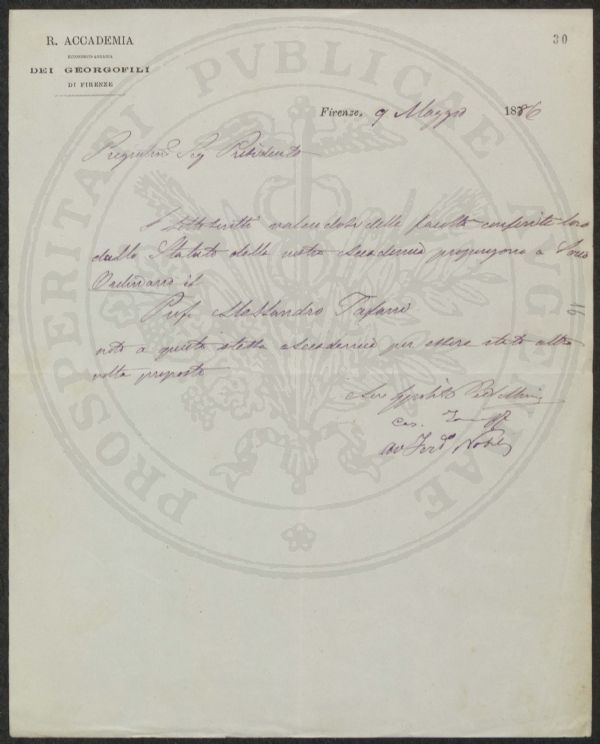 R. ACCADEMIA
ECONOMICO-AGRARIA
DEI GEORGOFILI
DI FIRENZE
30
Firenze, 9 Maggio 1886
Sig Presidente
I sottoscritti valendosi delle facoltà conferite loro
dallo Statuto della nostra Accademia propongono a Socio
Ordinario il
Prof. Alessandro Tafani
noto a questa stessa Accademia per essere stato altra
volta proposto
16
Av Ferdo Nobili
PROSPERITATI PUBLICAE AUGENDAE